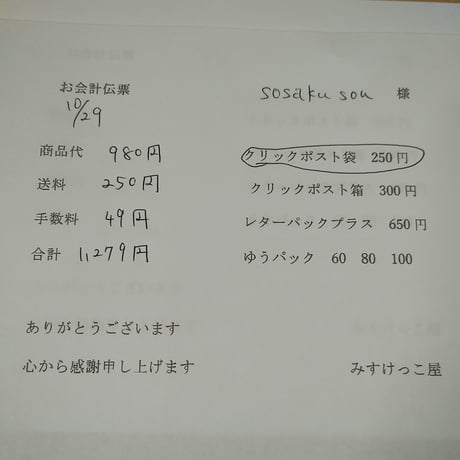 お会計伝票
10/29
商品代 980円
送料 250円
手数料 49円
合計 1,279円
ありがとうございます
心から感謝申し上げます
sosaku sou 様
クリックポスト袋 250円
クリックポスト箱 300円
レターパックプラス 650円
ゆうパック 60 80 100
みすけっこ屋